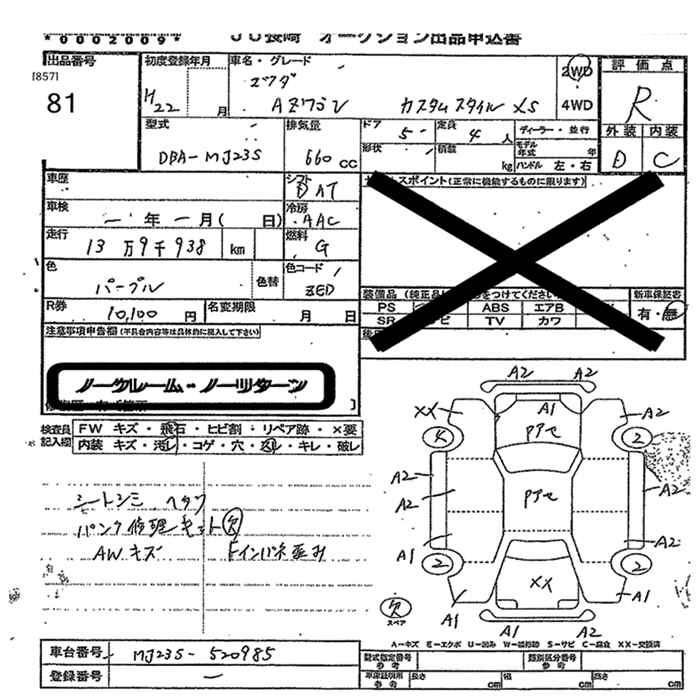 *0002009*
JU長崎 オークション出品申込書
出品番号
[857]
81
初度登録年月
H22 月
車名・グレード
マツダ
AZワゴン カスタムスタイル XS
2WD
4WD
評価点
R
外装 内装
D C
型式
DBA-MJ23S
排気量
660 CC
ドア 5
定員 4 人
ディーラー・並行
形状
積載 kg
モデル年式 年
ハンドル 左・右
車歴
シフト DAT
車検
年 月( 日)
冷房 AAC
走行
13万9千938 km
燃料 G
色
パープル
色替
色コード ZED
R券
10,100 円
名変期限 月 日
スポイント(正常に機能するものに限ります)
装備品 (純正品に をつけてください)
PS ABS エアB
SR TV カワ
新車保証書
有・無
注意事項申告欄(不具合内容等は具体的に記入して下さい)
ノークレーム・ノーリターン
検査員記入欄
FW キズ・飛石・ヒビ割・リペア跡・×要
内装 キズ・汚レ・コゲ・穴・スレ・キレ・破レ
シートシミ ヘタリ
パンク修理キット欠
AWキズ Fインパネ歪み
A2 A2
XX A1 A2
4 Pアセ 2
A2 A2
A2 Pアセ
A1 A2
2 2
XX
A1 A1
欠 スペア
A1 A2
A-キズ E-エクボ U-凹み W-補修跡 S-サビ C-腐食 XX-交換済
車台番号
MJ23S-520985
登録番号
型式指定番号 参考
類別区分番号 参考
車庫証明用 参考
長さ cm
幅 cm
高さ cm